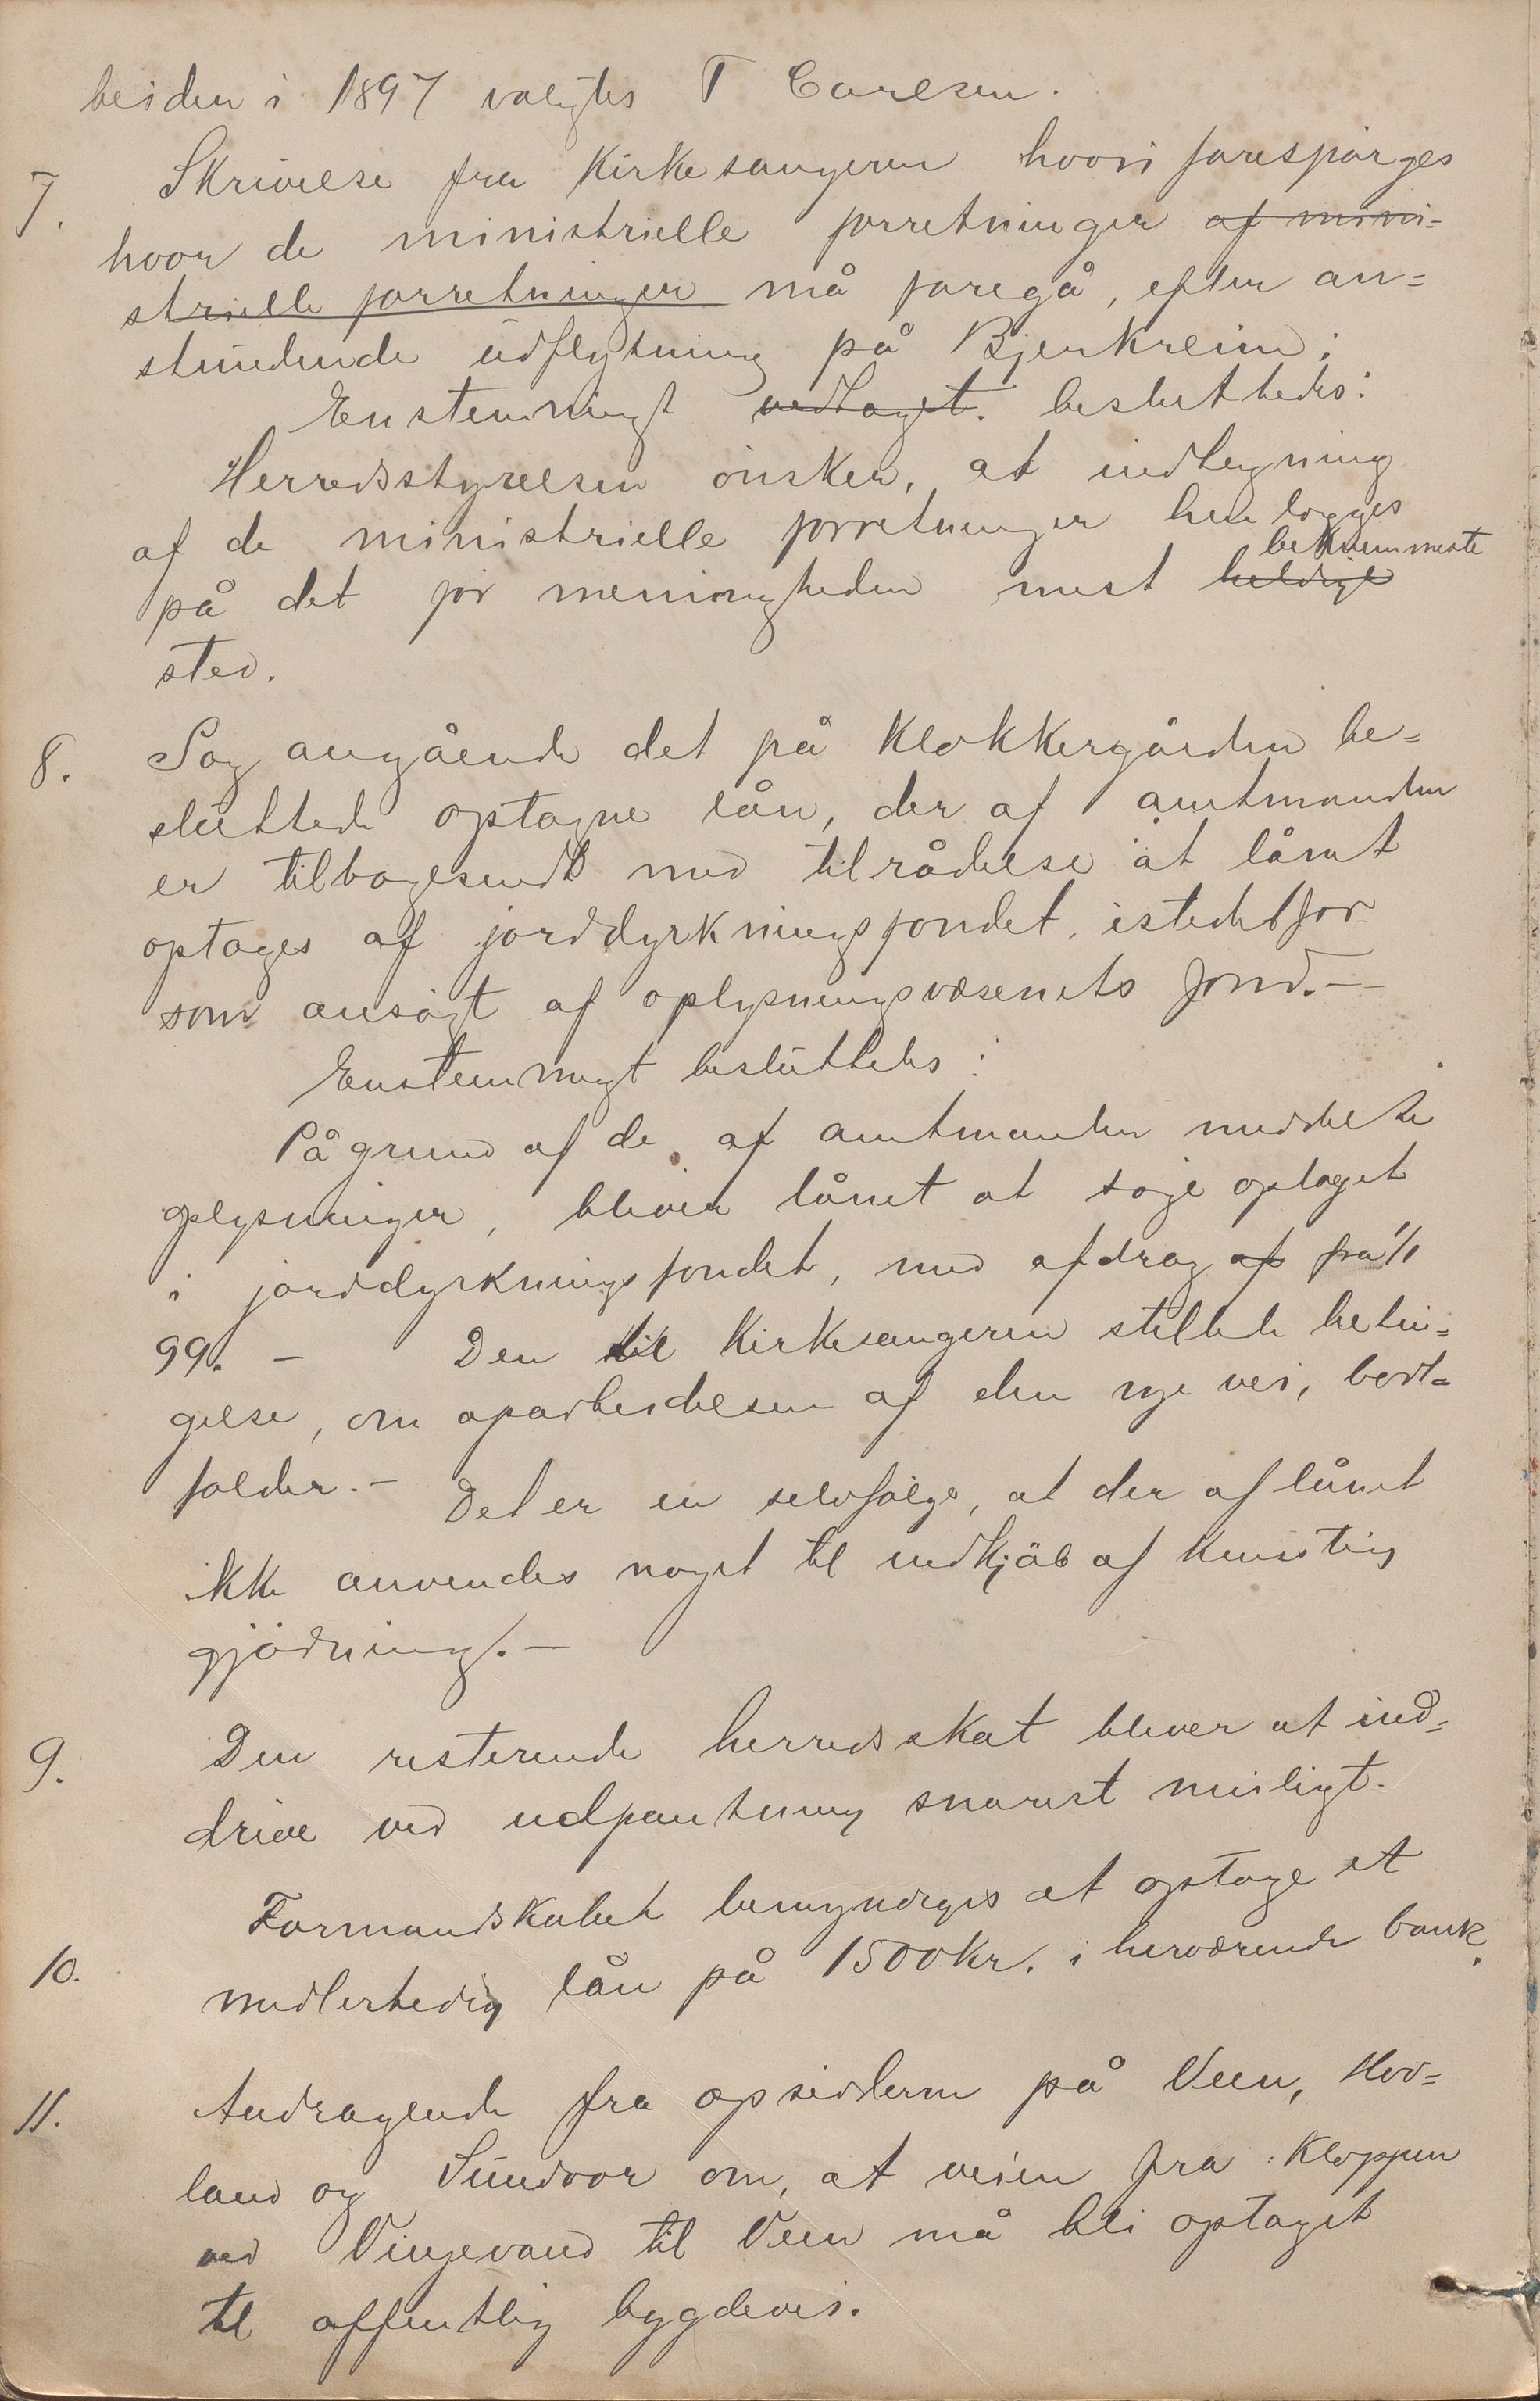 beiden i 1897 valgtes T Carlsen.
7. Skrivelse fra Kirkesangeren hvori forespørges
hvor de ministrielle forretninger af mini-
strielle forretninger må foregå, efter an-
stundende udflytning på Bjerkreim;
Enstemmigt vedtaget. besluttedes:
Herredsstyrelsen ønsker, at indtegning
af de ministrielle forretninger henlægges
bekvemmeste
på det for menigheden mest heldige
sted.
8. Sag angående det på Klokkergården be-
sluttede optagne lån, der af amtmanden
er tilbagesendt med tilrådelse at lånet
optages af jorddyrkningsfondet, istedetfor
som ansøgt af oplysningsvæsenets fond.-
Enstemmigt besluttedes:
På grund af de af amtmanden meddelte
oplysninger, bliver lånet at søge optaget
i jorddyrkningsfondet, med afdrag af fra 1/1
99. - Den til Kirkesangeren stillede betin-
gelse, om oparbeidelsen af den nye vei, bort-
falder.- Det er en selvfølge, at der af lånet
ikke anvendes noget til indkjøb af kunstig
gjødning.-
9. Den resterende herredsskat bliver at ind-
drive ved udpantning snarest muligt.
Formandskabet bemyndiges at optage et
10. midlertidig lån på 1500 Kr. i herværende bank.
11. Andragende fra opsidderne på Veen, Hov-
land og Sundvor om, at veien fra Kloppen
ved Vingevand til Veen må bli optaget
til offentlig bygdevei.